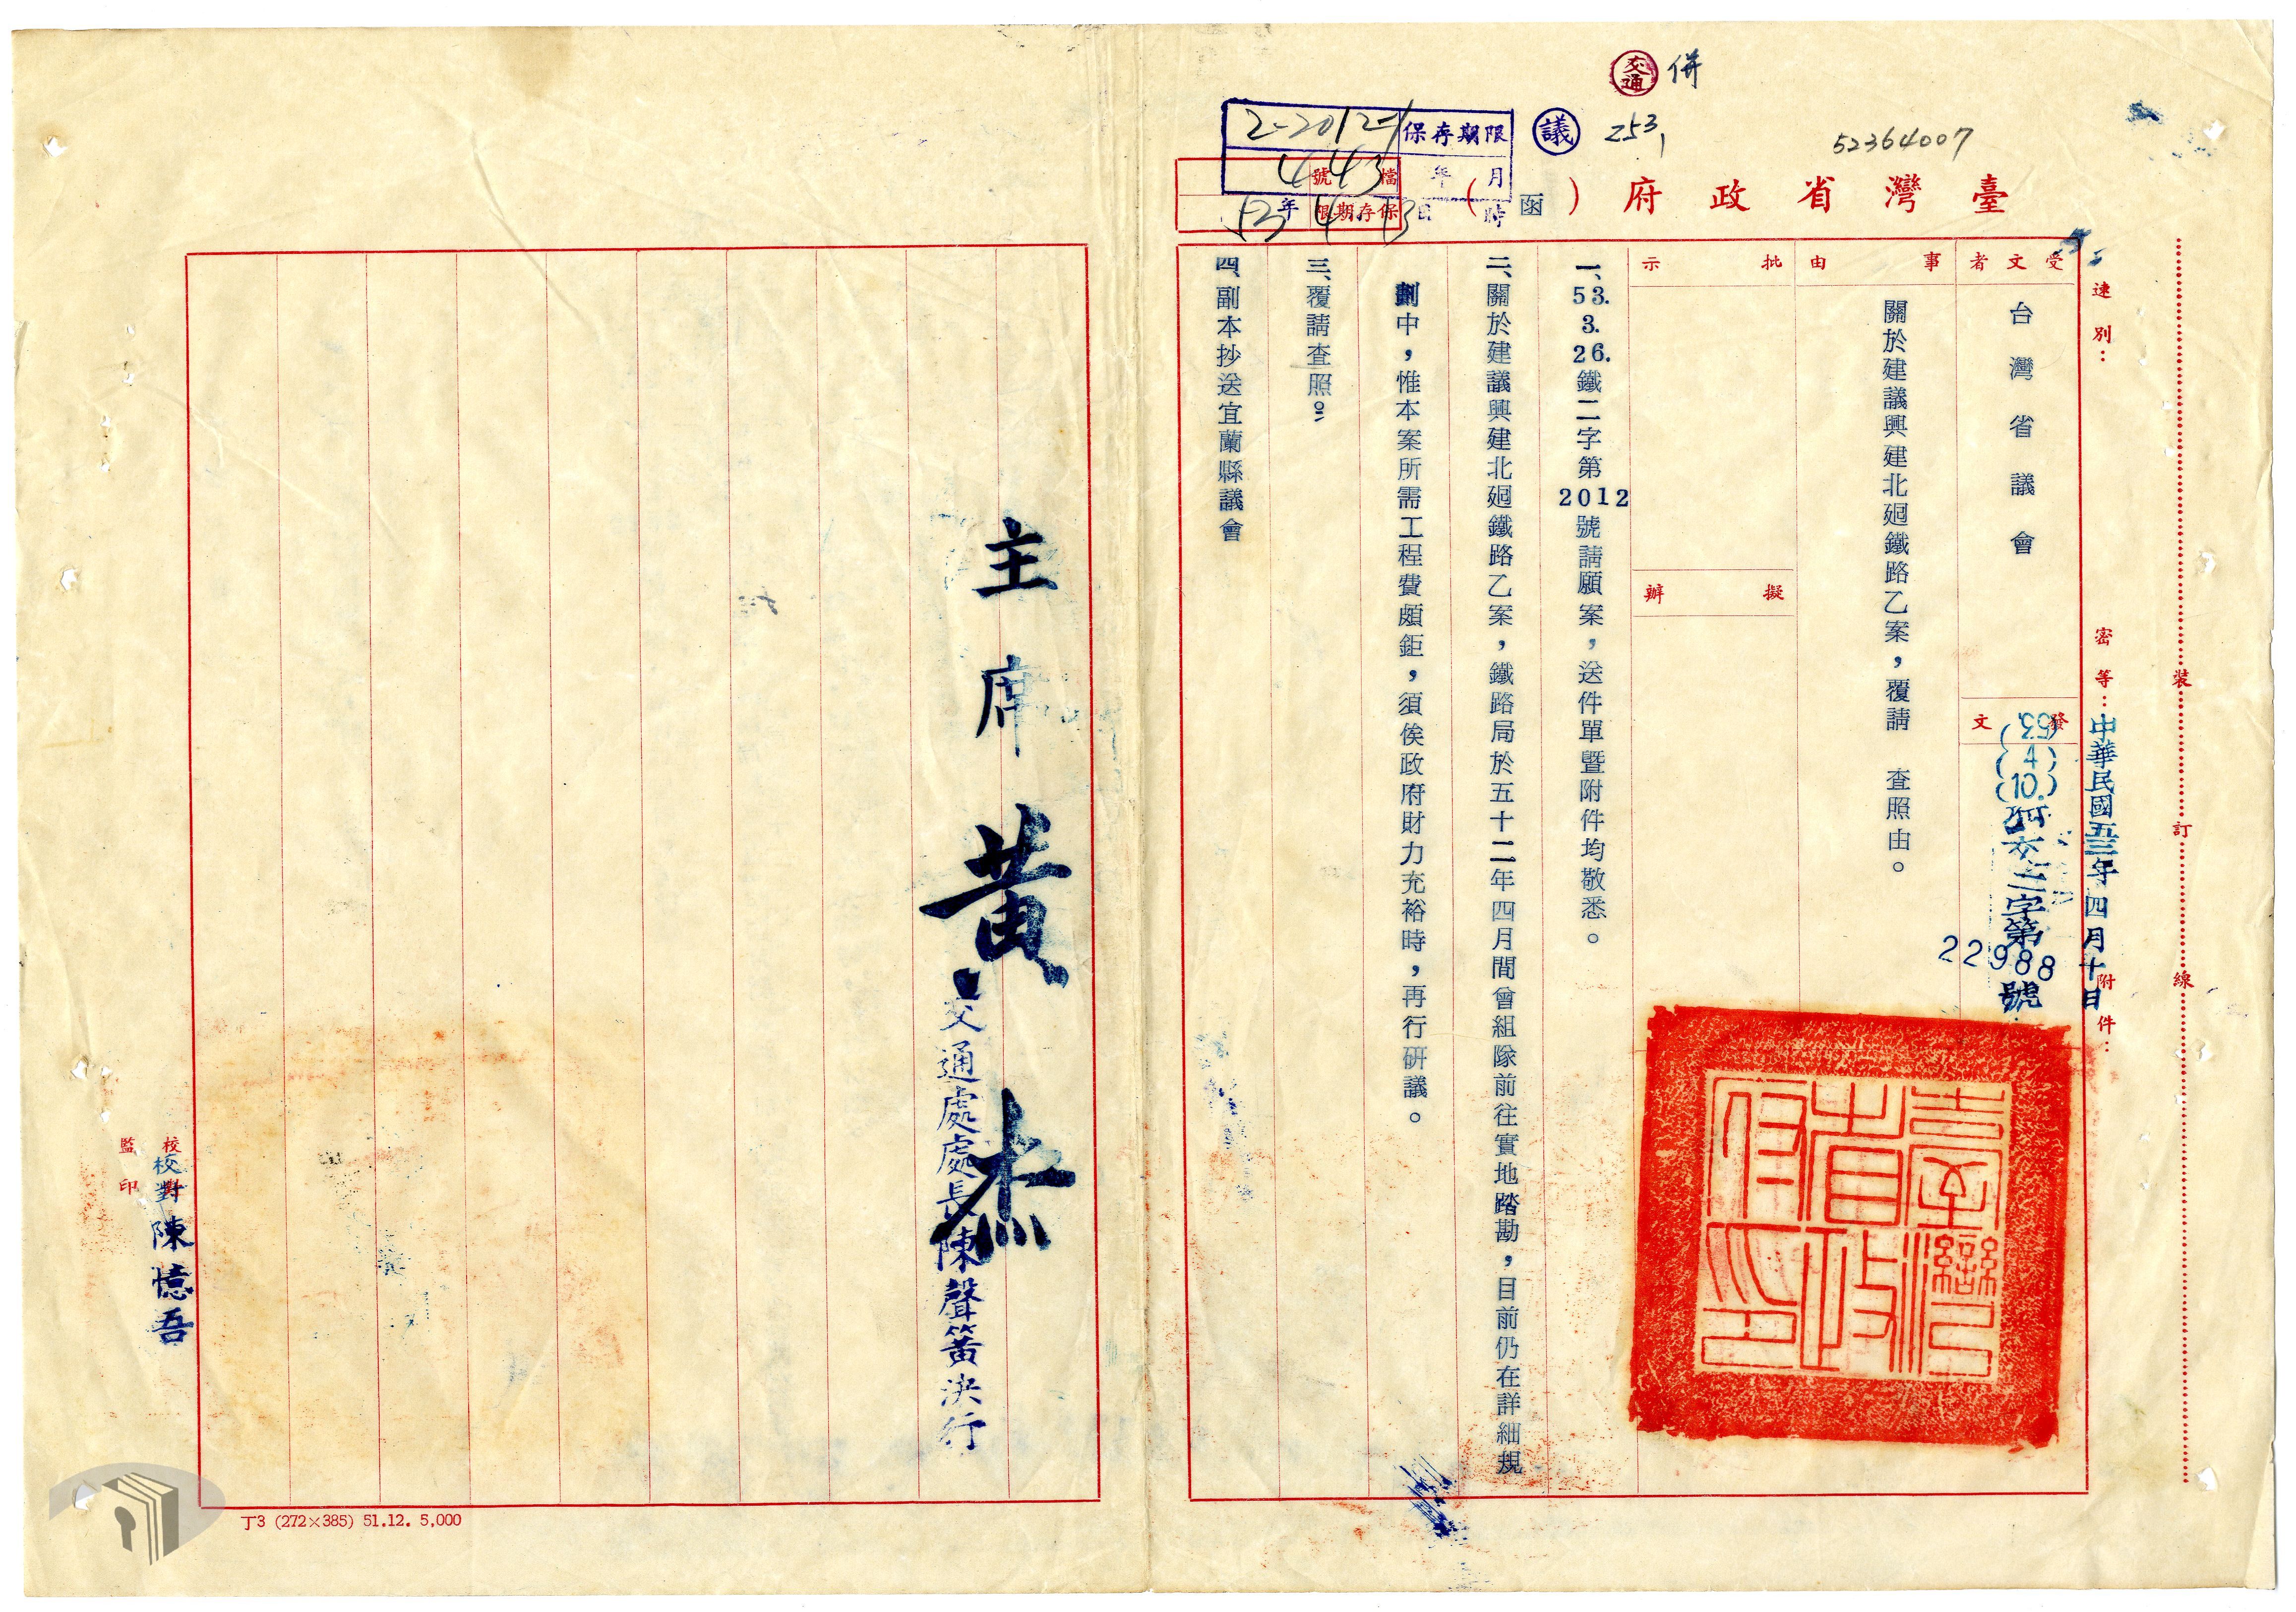 交通 併
議 253,
52364007
2-2012-1
保存期限
年 月
日 時
443
檔號
53年 4. 13
保存期限
臺灣省政府(函)
裝訂線
速別:
密等:
中華民國五三年四月十日
附件:
受文者
台灣省議會
發文
(53)
(4)
(10.)
交二字第
22988
號
事由
關於建議興建北廻鐵路乙案,覆請 查照由。
批示
擬辦
一、53.3.26.鐵二字第2012號請願案,送件單暨附件均敬悉。
二、關於建議興建北廻鐵路乙案,鐵路局於五十二年四月間曾組隊前往實地踏勘,目前仍在詳細規
劃中,惟本案所需工程費頗鉅,須俟政府財力充裕時,再行研議。
三、覆請查照。
四、副本抄送宜蘭縣議會
臺灣省政府印
主席黃杰
交通處處長陳聲簧決行
校對
校對 陳憶吾
監印
丁3 (272×385) 51.12. 5,000